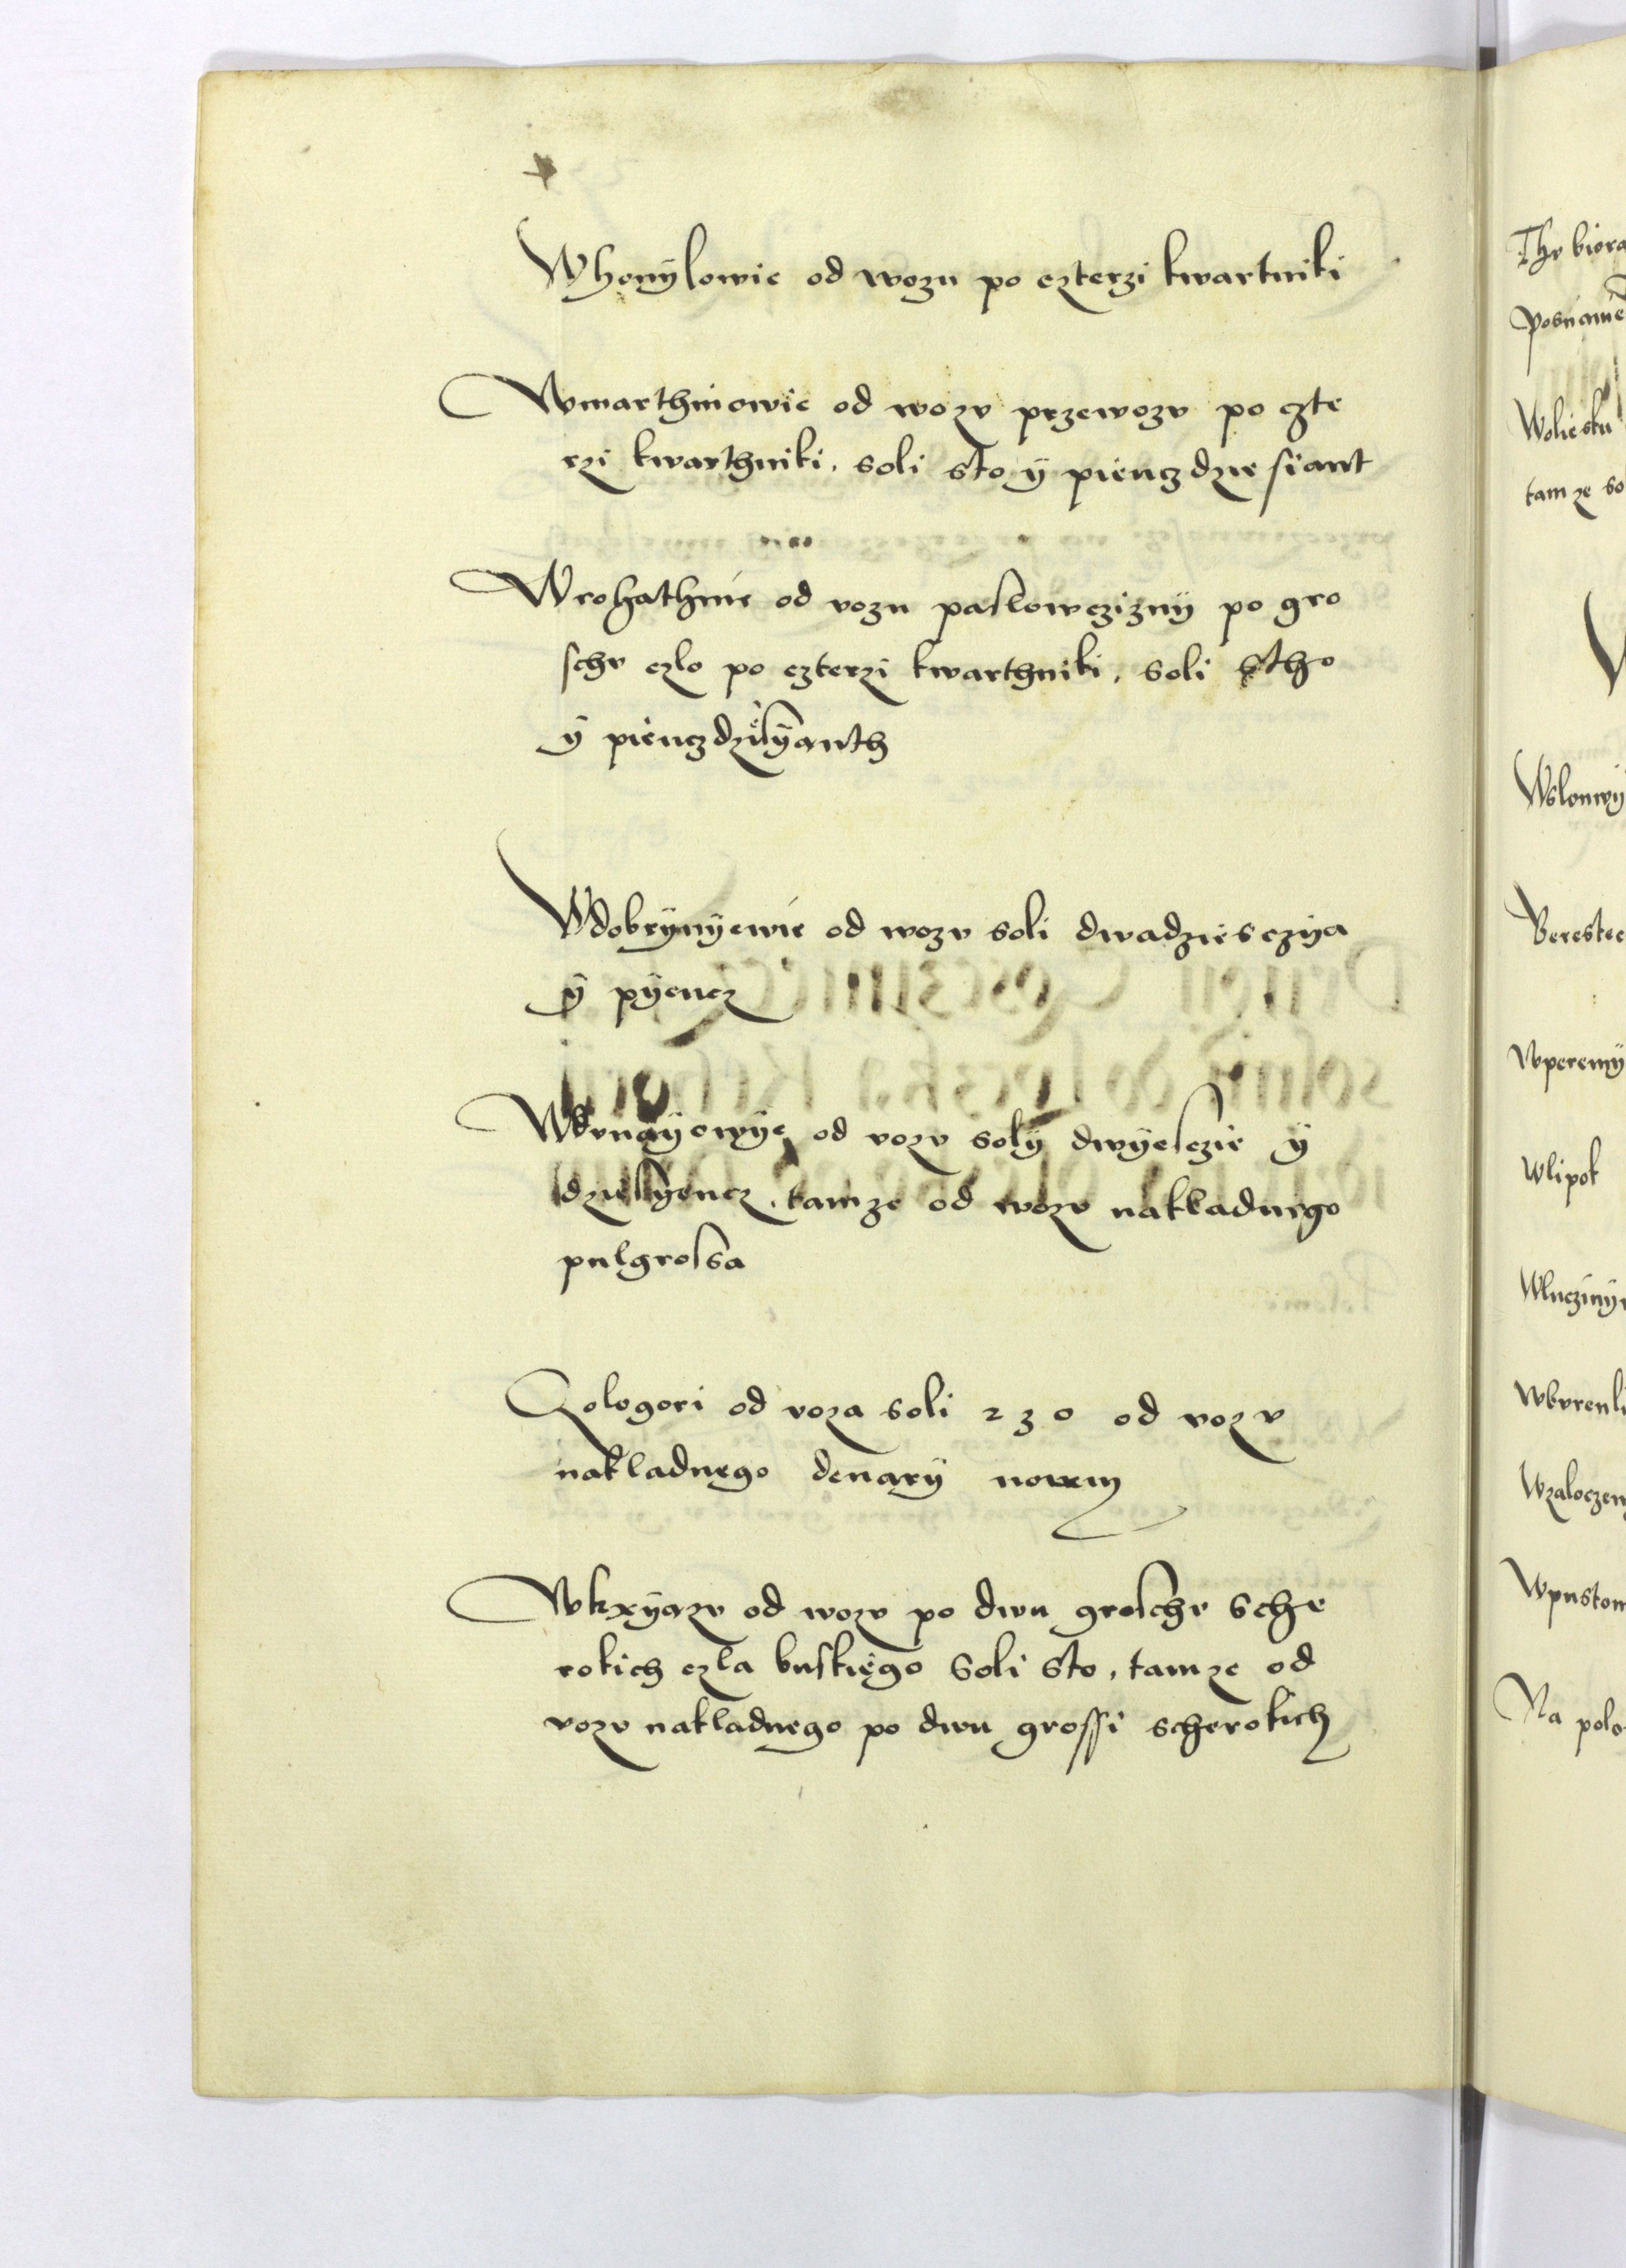 Whonÿlowie od wozu po czterzi kwartniki
Wmarthinowie od wozv przewozv po czte
rzi kwarthniki, soli sto ÿ piencz dzie siant
Wrohathinie od vozu paslowcziznÿ po gro
schv czlo po czterzi kwarthniki, soli stho
ÿ piencz dziesÿanth
Wdobrÿnÿewie od wozv soli dwadziesczÿa
ÿ pÿencz
Wdvnaÿowÿe od vozv solÿ dwÿesczie ÿ
dziesÿencz, tamze od wozv nakladnego
pulgrossa
Zologori od voza soli 230 od vozv
nakladnego denarÿ novem
Wkxÿazv od wozv po dwu groschv sche
rokich czla buskiego soli sto, tamze od
vozv nakladnego po dwu grossi scherokich
Thv biora
Woliesku
tam ze so
Wslonwÿ
Berestec
Wperemÿ
Wlipok
Wbvrenli
Wzaloczew
Wpustom
Na polo